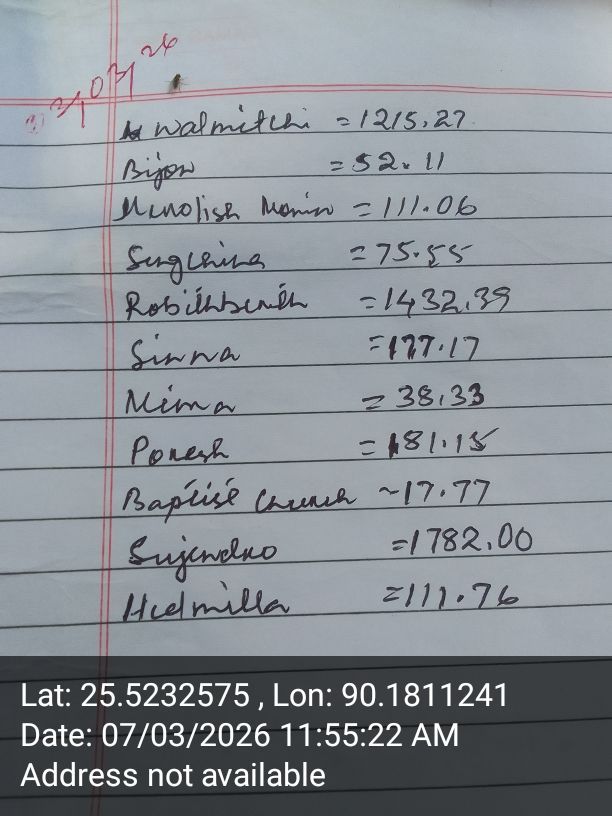 walmitchi = 1215.27
Bijon = 52.11
Momin = 111.06
Sengchina = 75.55
= 1432.39
Sinna = 177.17
Mima = 38.33
Ponesh = 181.15
Baptist Church ~ 17.77
Sujendro = 1782.00
Hudmilla = 111.76
Lat: 25.5232575 , Lon: 90.1811241
Date: 07/03/2026 11:55:22 AM
Address not available